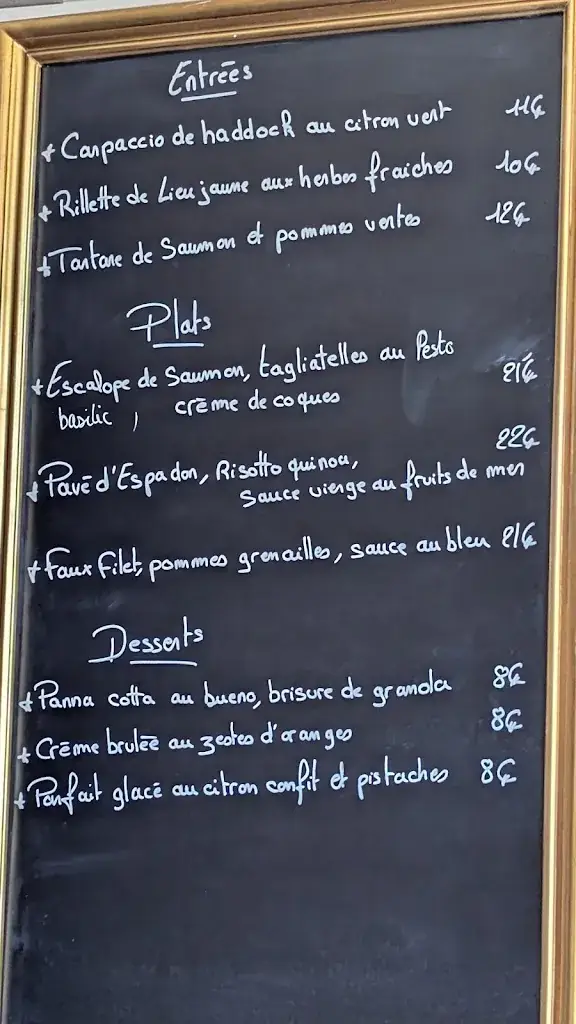 Entrées
+ Carpaccio de haddock au citron vert 11€
+ Rillette de Lieu jaune aux herbes fraiches 10€
+ Tartare de Saumon et pommes vertes 12€
Plats
+ Escalope de Saumon, tagliatelles au Pesto
basilic, crème de coques 21€
22€
+ Pavé d'Espadon, Risotto quinoa,
Sauce vierge au fruits de mer
+ Faux Filet, pommes grenailles, sauce au bleu 21€
Desserts
+ Panna cotta au bueno, brisure de granola 8€
+ Crème brulée au zestes d'oranges 8€
+ Parfait glacé au citron confit et pistaches 8€